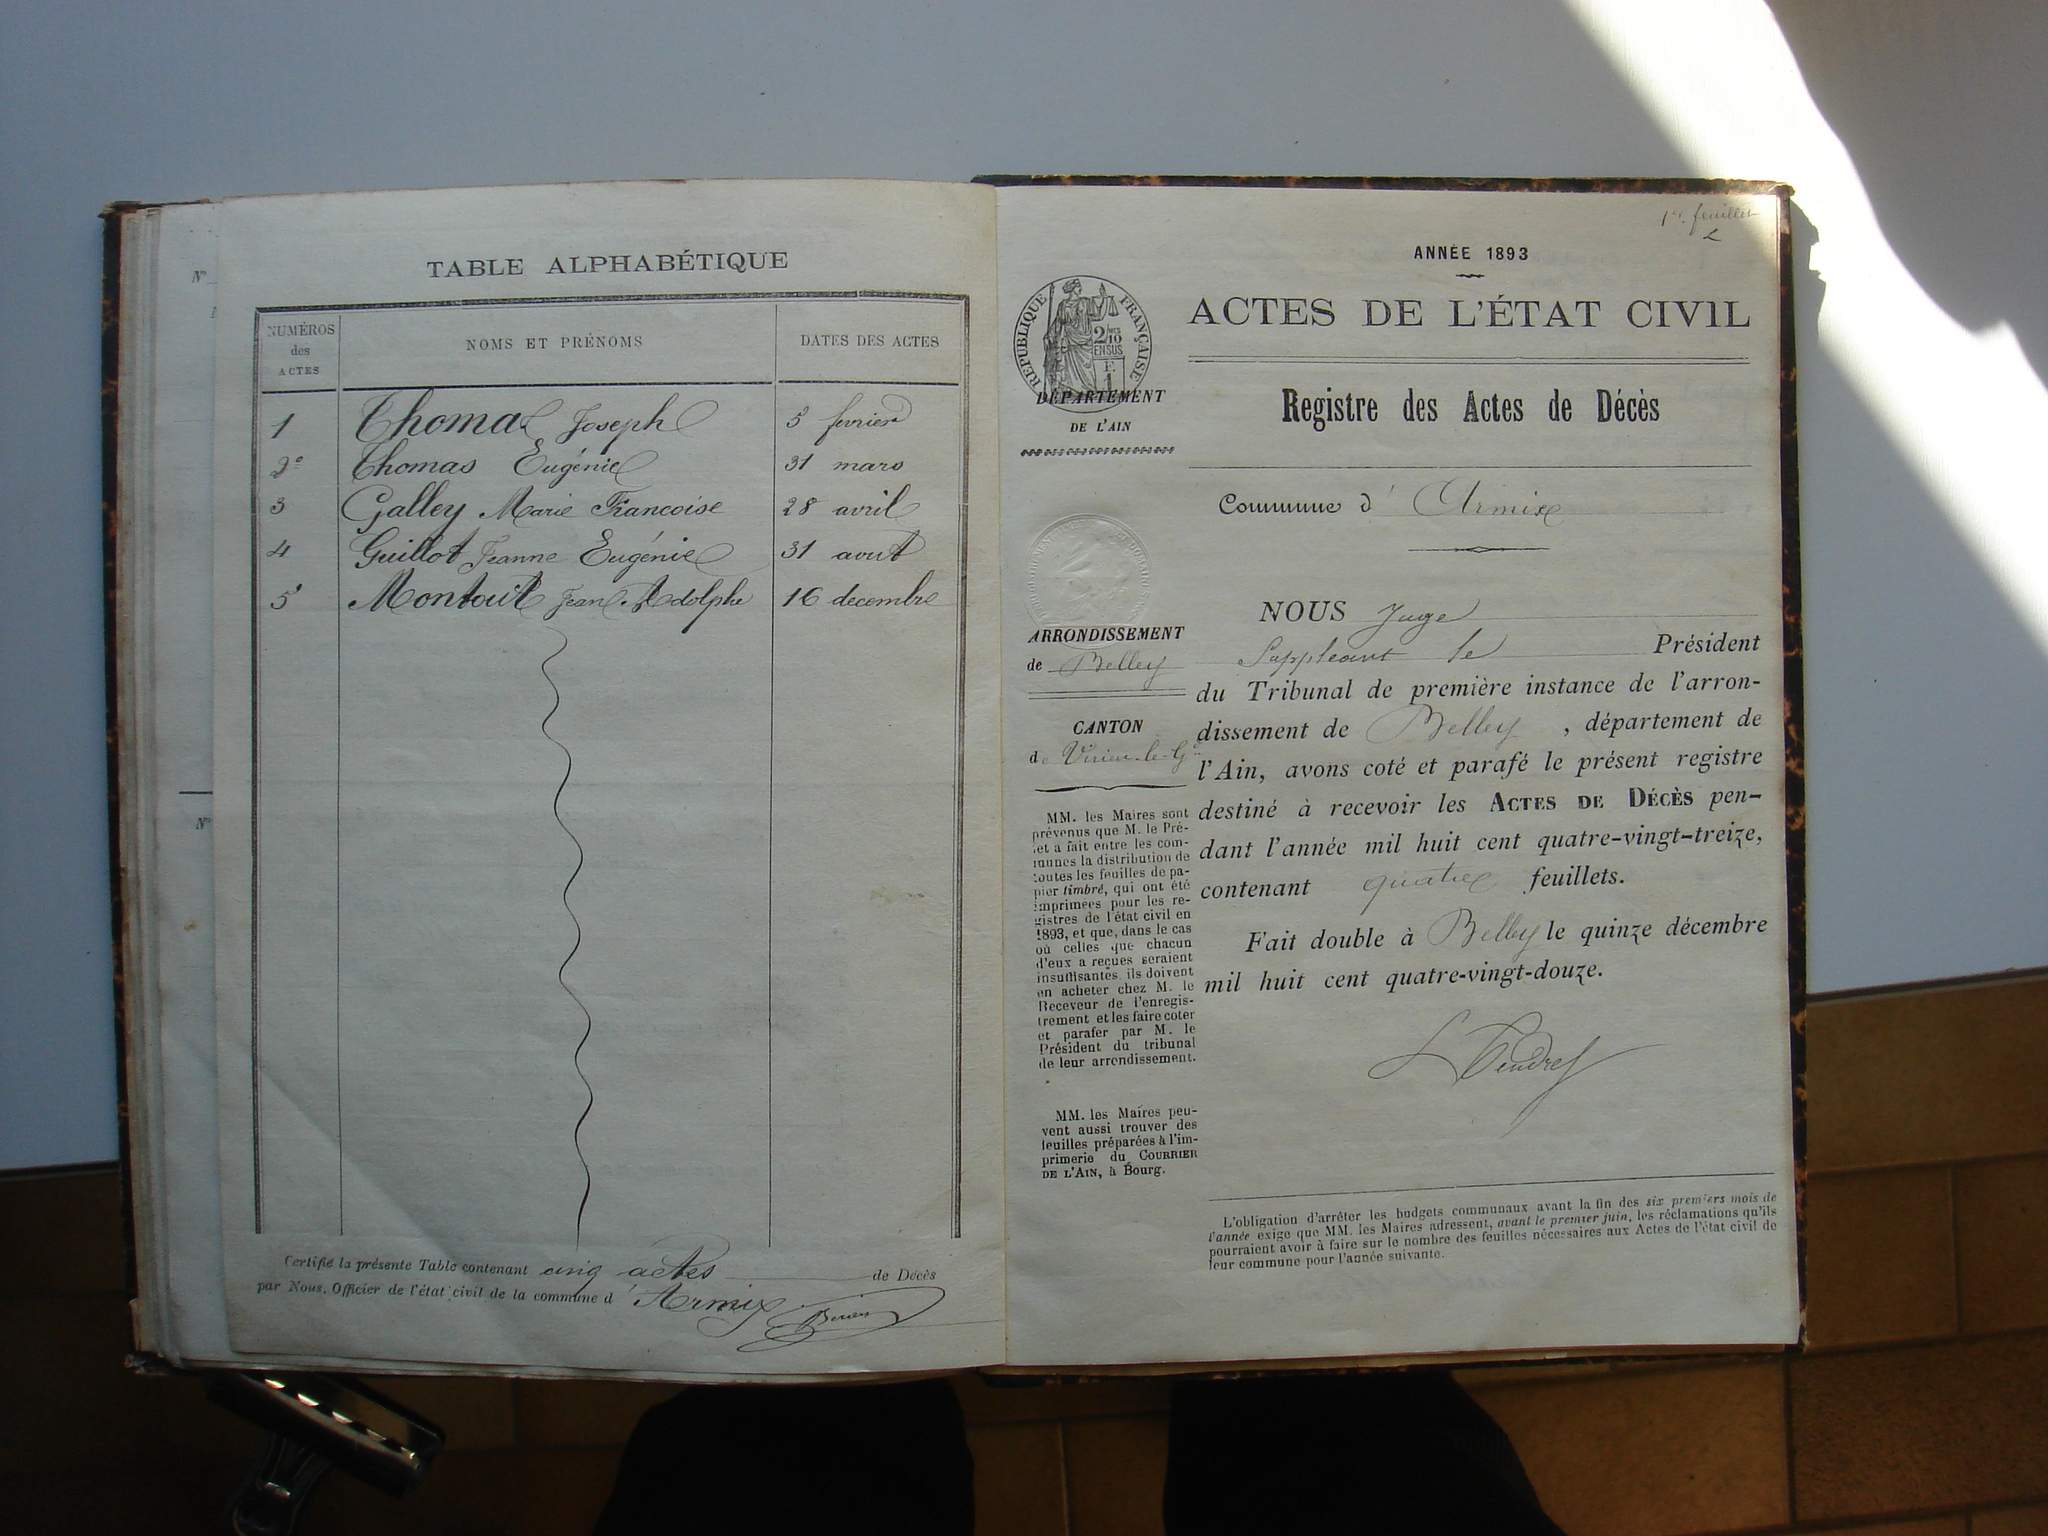 TABLE ALPHABÉTIQUE
NUMÉROS des ACTES
NOMS ET PRÉNOMS
DATES DES ACTES
1 Thomas Joseph 5 fevrier
2e Thomas Eugénie 31 mars
3 Galley Marie Francoise 28 avril
4 Guillot Jeanne Eugénie 31 aout
5 Montout Jean Adolphe 16 decembre
Certifié la présente Table contenant cinq actes de Décès
par Nous, Officier de l'état civil de la commune d'Armix
N°
N°
1er feuillet
ANNÉE 1893
ACTES DE L'ÉTAT CIVIL
RÉPUBLIQUE FRANÇAISE
2/10 EN SUS
F. 1
DÉPARTEMENT
DE L'AIN
Registre des Actes de Décès
Commune d'Armix
ARRONDISSEMENT
de Belley
CANTON
de Virieu-le-Gd
MM. les Maires sont
prévenus que M. le Pré-
fet a fait entre les com-
munes la distribution de
toutes les feuilles de pa-
pier timbré, qui ont été
imprimées pour les re-
gistres de l'état civil en
1893, et que, dans le cas
où celles que chacun
d'eux a reçues seraient
insuffisantes, ils doivent
en acheter chez M. le
Receveur de l'enregis-
trement et les faire coter
et parafer par M. le
Président du tribunal
de leur arrondissement.
MM. les Maires peu-
vent aussi trouver des
feuilles préparées à l'im-
primerie du COURRIER
DE L'AIN, à Bourg.
NOUS Juge
Suppleant le Président
du Tribunal de première instance de l'arron-
dissement de Belley, département de
l'Ain, avons coté et parafé le présent registre
destiné à recevoir les ACTES DE DÉCÈS pen-
dant l'année mil huit cent quatre-vingt-treize,
contenant quatre feuillets.
Fait double à Belley le quinze décembre
mil huit cent quatre-vingt-douze.
L'obligation d'arrêter les budgets communaux avant la fin des six premiers mois de
l'année exige que MM. les Maires adressent, avant le premier juin, les réclamations qu'ils
pourraient avoir à faire sur le nombre des feuilles nécessaires aux Actes de l'état civil de
leur commune pour l'année suivante.